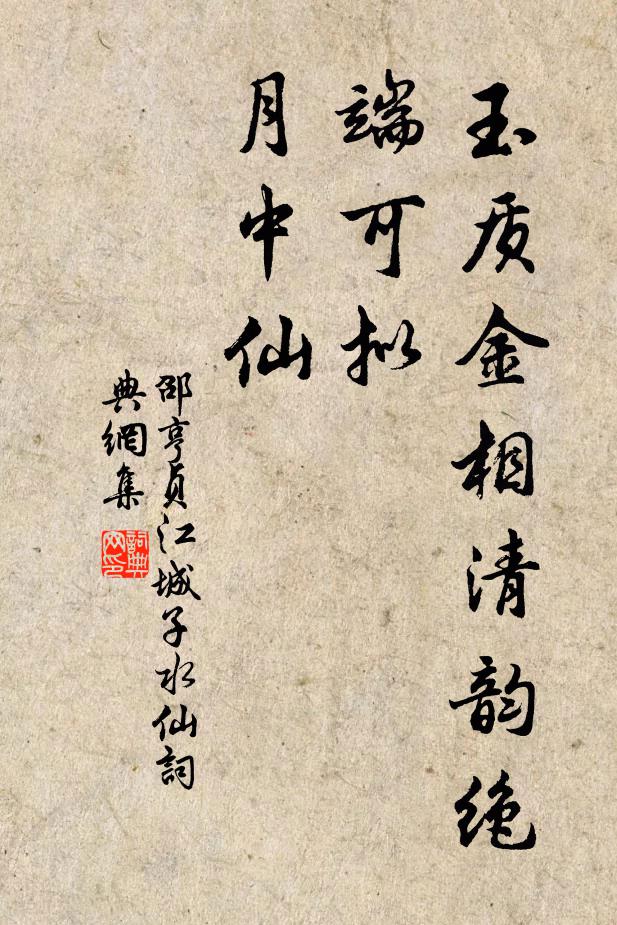 玉质金相清韵绝
端可拟
月中仙
邵亨贞江城子水仙詞
典網集
詞典
网印